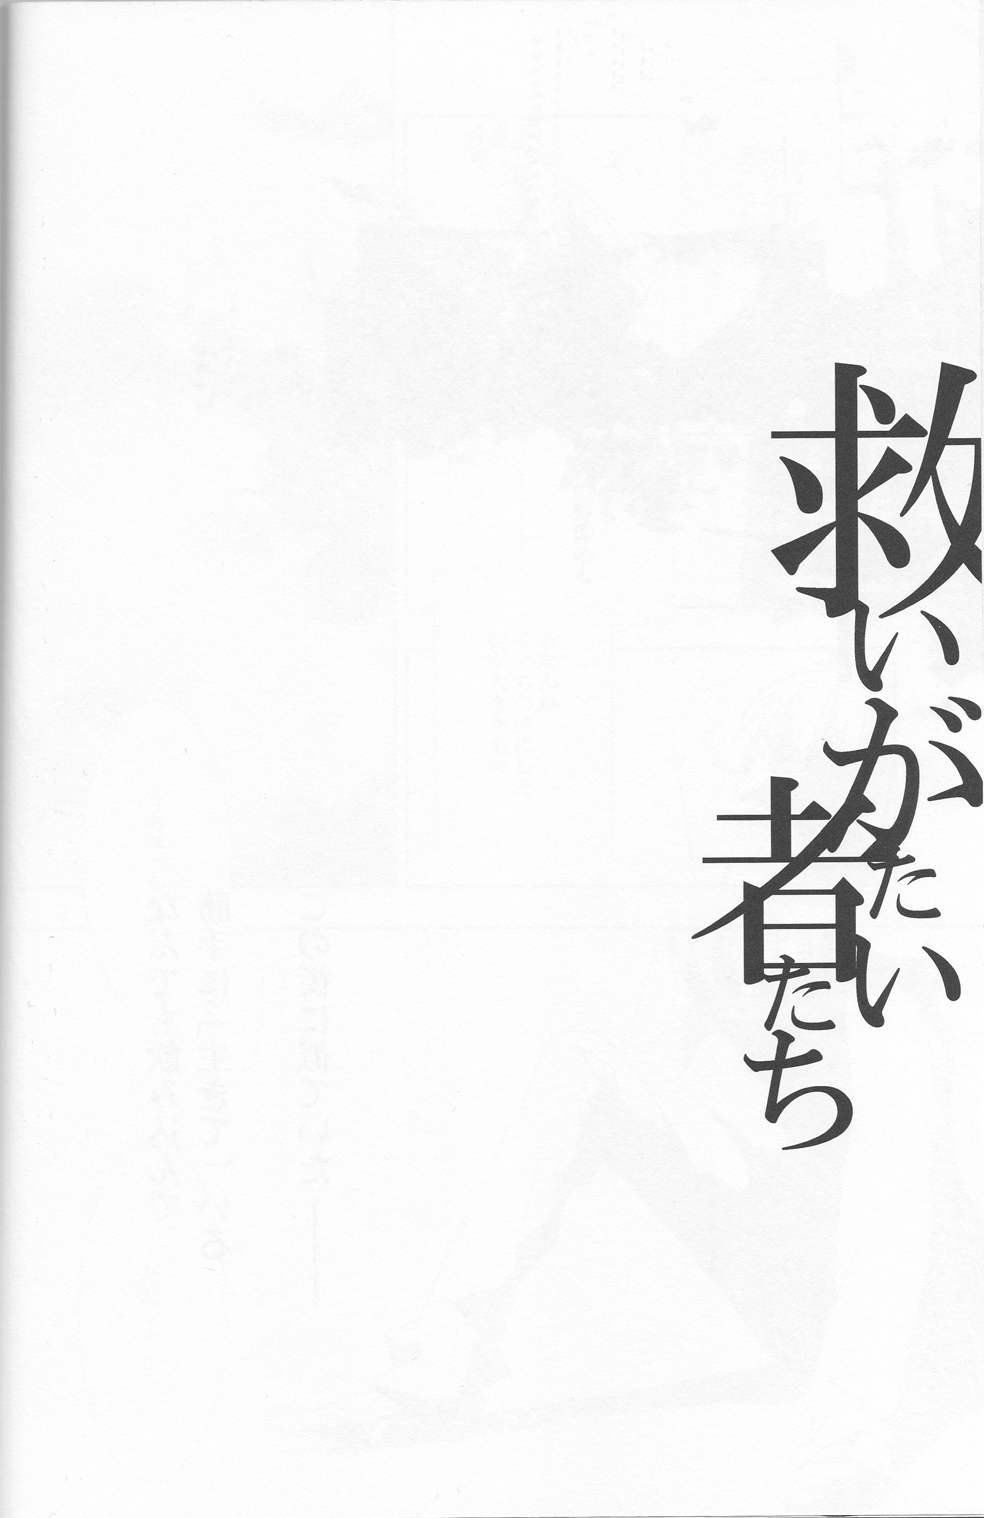 救いがたい
者たち